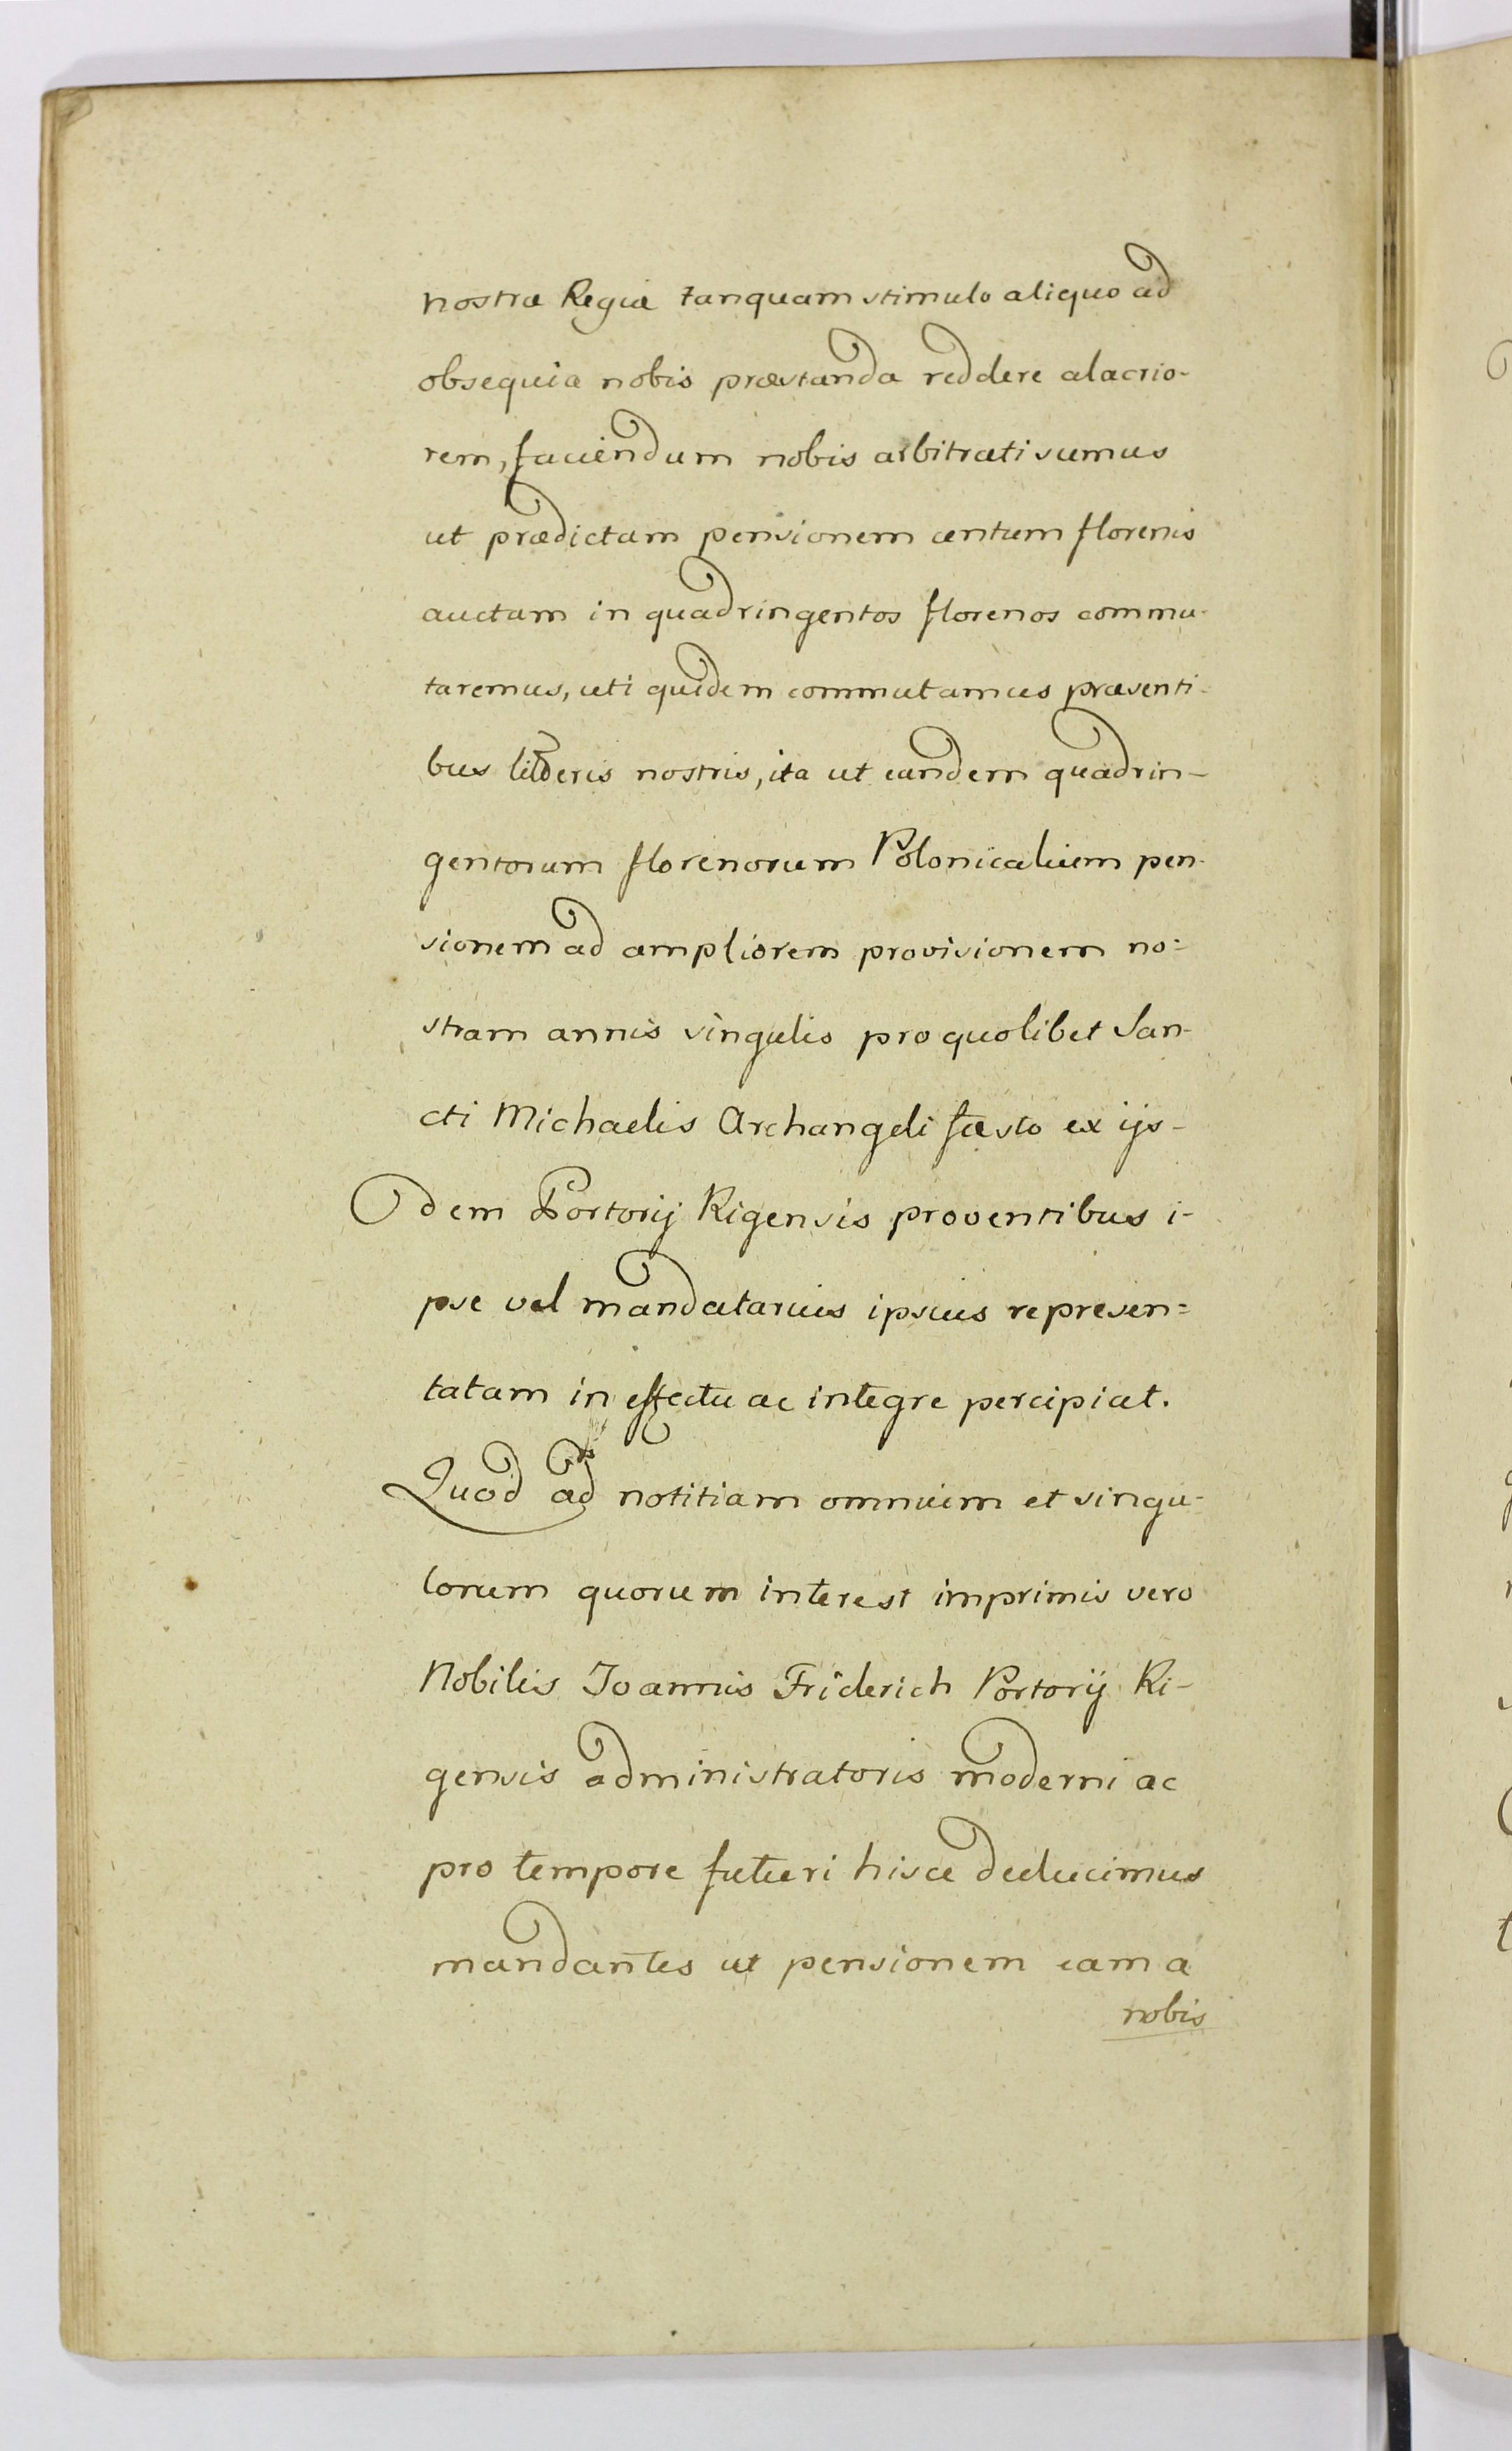 nostræ Regiæ tanquam stimulo aliquo ad
obsequia nobis præstanda reddere alacrio-
rem, faciendum nobis arbitrati sumus
ut prædictam pensionem centum florenis
auctam in quadringentos florenos commu-
taremus, uti quidem commutamus præsenti-
bus litteris nostris, ita ut eandem quadrin-
gentorum florenorum Polonicalium pen-
sionem ad ampliorem provisionem no=
stram annis singulis pro quolibet San-
cti Michaelis Archangeli fæsto ex ijs-
dem Portorij Rigensis proventibus i-
pse vel mandatarius ipsius represen=
tatam in effectu ac integre percipiat.
Quod ad notitiam omnium et singu-
lorum quorum interest imprimis vero
Nobilis Joannis Friderich Portorij Ri-
gensis administratoris moderni ac
pro tempore futuri hisce deducimus
mandantes ut pensionem eam a
nobis